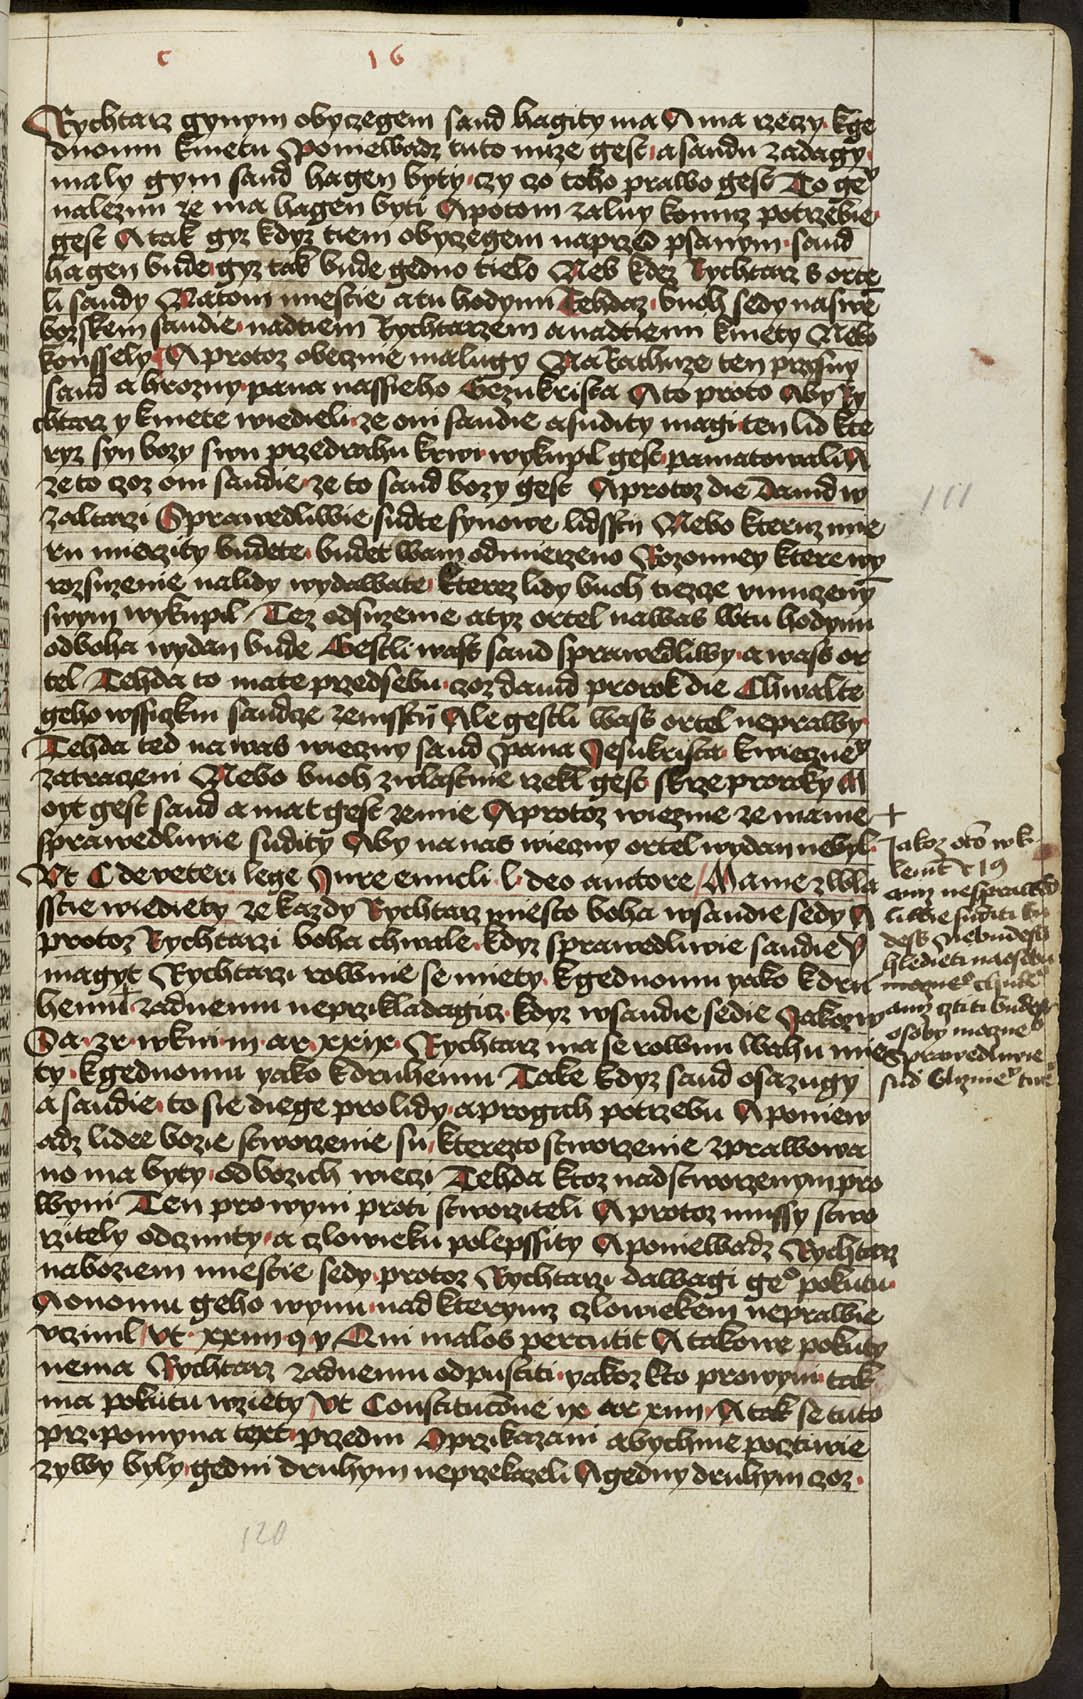 c 16
Rychtarz gynym obyczegem saud hagity ma A ma rzeczy kge
dnomu kmetu Poniewadz tuto mize gest a saudu zadagy
maly gym saud hagen byty czy czo toho prawo gest To geͮ
nalezmi ze ma hagen byti A potom zaluy komuz potrzebie
gest A tak gyz kdyz tiem obyczegem naprzed psanym saud
hagen bude gyz tak bude gedno tielo Neb kdez Rychtarz s orte
li saudy Na tom miestie a tu hodynu Tehdaz buoh sedy na swe
bozskem saudie nad tiem Rychtarzem a nad tiemi kmety Nebo
konssely A protoz obecznie malugy Na Rathuze ten przisny
saud a hrozny pana nassieho Gezukrista A to proto Aby Ry
chtarz y kmete wiedieli ze oni saudie a sudity magi ten lid kte
ryz syn bozy swu przedrahu krwi wykupil gest pamatowali A
ze to czoz oni saudie ze to saud bozy gest A protoz die Dauid w
zaltarzi Sprawedliwie sudte synowe lidsstij Nebo kteruz mie
ru mierzity budete budet wam odmierzeno Rozomiey ktere wy
rozsuzenie na lidy wydawate kterez lidy buoh tiezcze vmuczenȳ
swym wykupil Tez odsuzenie a tyz ortel na was w tu hodynu
od boha wydan bude Gestli wass saud sprawedliwy a wass or
tel Tehda to mate przed sebu czoz dauid prorok die Chwalte
geho wssiczkni saudcze zemsstij Ale gestli wass ortel neprawy
Tehda ted na was wieczny saud Pana Jesukrista k wiecznͤͮ
zatraczeni Nebo buoh zwlastnie rzekl gest skrze proroky M
oyt gest saud a mat gest ze mnie A protoz wiezme ze mame +
sprawedliwie sudity Aby na nas wieczny ortel wydan nebyl
Vt C de veteri lege Jure enucli l deo auctore Mame zwla
sstie wiediety ze kazdy Rychtarz miesto boha w saudie sedy A
protoz Rychtarzi boha chwale kdyz sprawedliwie saudie
magyt Rychtarzi rownie se miety k gednomu yako k dru
hemu zadnemu neprzikladagicz kdyz w saudie sedie Jakoz w
Sa zr w kni m ar xxix Rychtarz ma se rownu wahu mie
ty k gednomu yako k druhemu Take kdyz saud osazugy
a saudie to sie diege pro lidy a pro gich potrzebu A poniew
adz lidee bozie stworzenie su kterezto stworzenie zprawowa
no ma byty od bozich wieczi Tehda ktoz nad stworzenym pro
wyni Ten prowyni proti stworziteli A protoz mussy stwo
rzitely odczinity a czlowieku polepssity A poniewadz Rychtarz
na boziem miestie sedy protoz Rychtarzi dawagi geͦ pokutu
A onomu geho wynu nad kterymz czlowiekem neprawie
vczinil Vt xxiiii q y Qui malos percutit A takowe pokuty
nema Rychtarz zadnemu odpustiti yakoz kto prowyni tak
ma pokutu wziety Vt Constitucōne ix ar xiiii A tak se tuto
przipomyna text przedni O przikazani abychme pocztiwie
zywy byly gedni druhym neprzekazeli A gedny druhym czoz
Jakoz
ani nesprawed
liwie suditi bu
dess Nebudess
hledieti na osobu
ani cztiti budess
osoby moczneͦ
Sprawedliwie
sud blizniͤͦ tweͦ
111
120